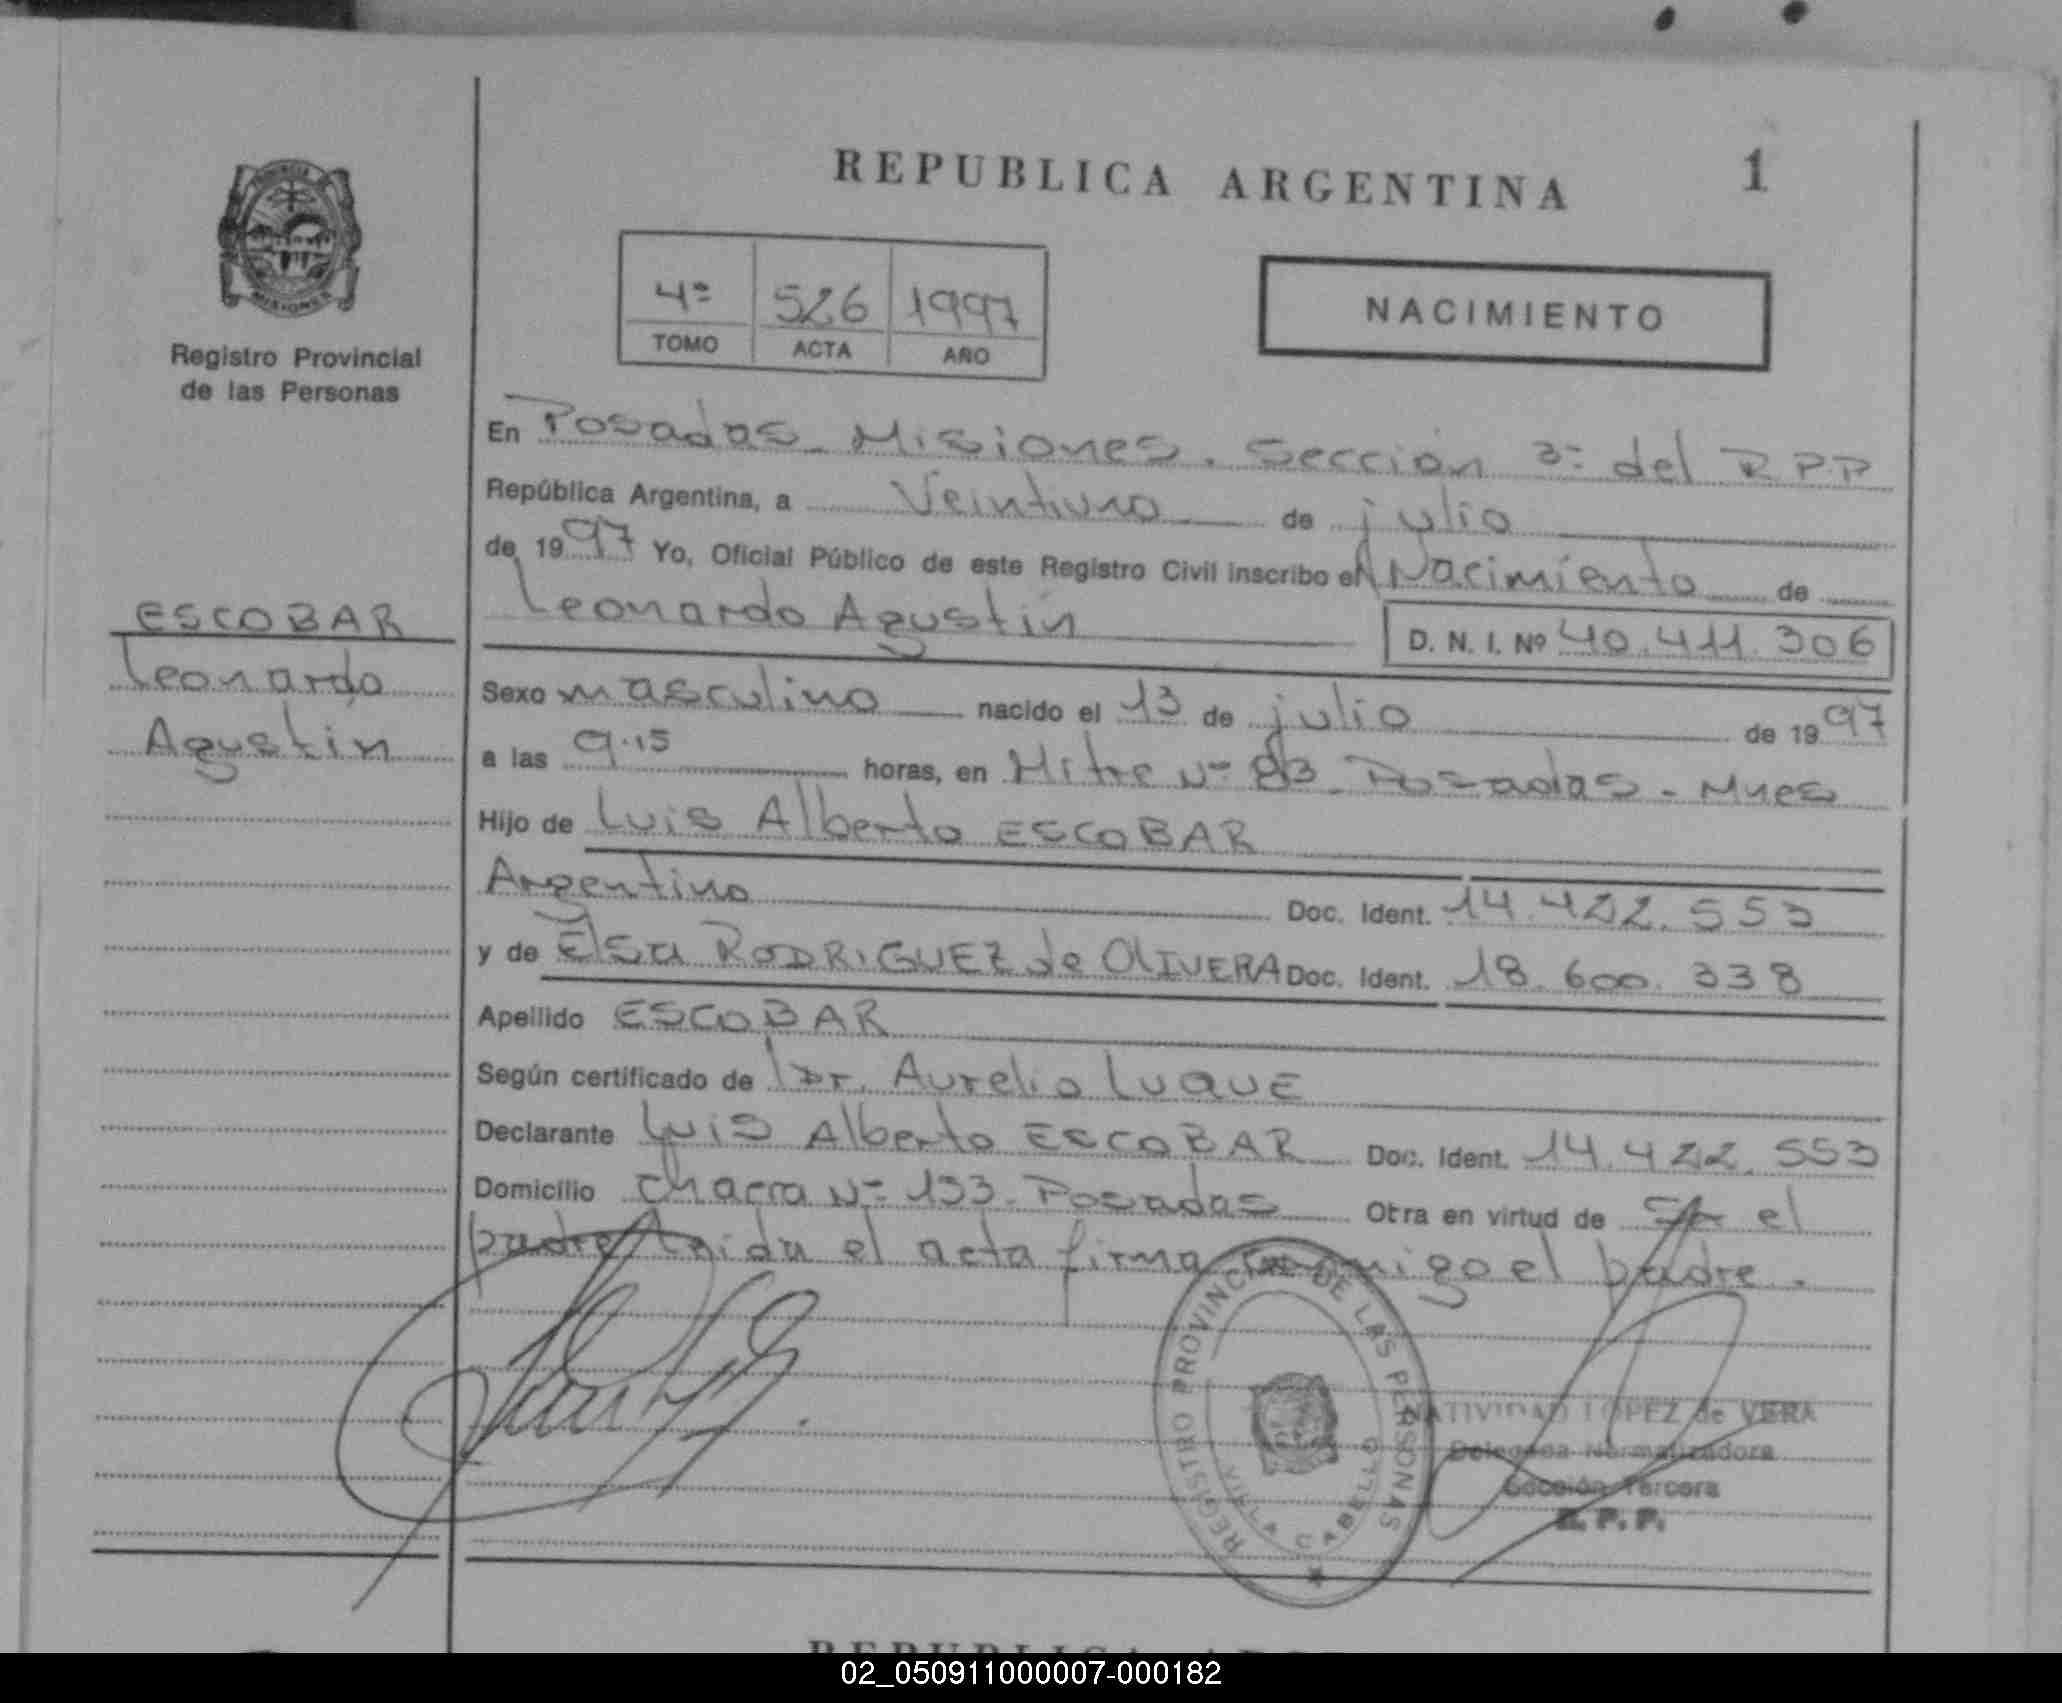 REPUBLICA ARGENTINA 1
MISIONES
Registro Provincial
de las Personas
4º 526 1997
TOMO ACTA AÑO
NACIMIENTO
En Posadas - Misiones. Sección 3º del R P P
República Argentina, a Veintiuno de julio
de 1997 Yo, Oficial Público de este Registro Civil inscribo el Nacimiento de
Leonardo Agustín
D. N. I. Nº 40.411.306
ESCOBAR
Leonardo
Agustín
Sexo masculino nacido el 13 de julio de 1997
a las 9.15 horas, en Mitre Nº 83 - Posadas - Mnes
Hijo de Luis Alberto ESCOBAR
Argentino Doc. Ident. 14.422.553
y de Elsa RODRIGUEZ de OLIVERA Doc. Ident. 18.600.338
Apellido ESCOBAR
Según certificado de Dr. Aurelio Luque
Declarante Luis Alberto ESCOBAR Doc. Ident. 14.422.553
Domicilio Chacra Nº 133 - Posadas Otra en virtud de Ser el
padre Leida el acta firma conmigo el padre.
REGISTRO PROVINCIAL DE LAS PERSONAS
VILLA CABELLO
NATIVIDAD LOPEZ de VERA
Delegada Normalizadora
Sección Tercera
R. P. P.
02_050911000007-000182